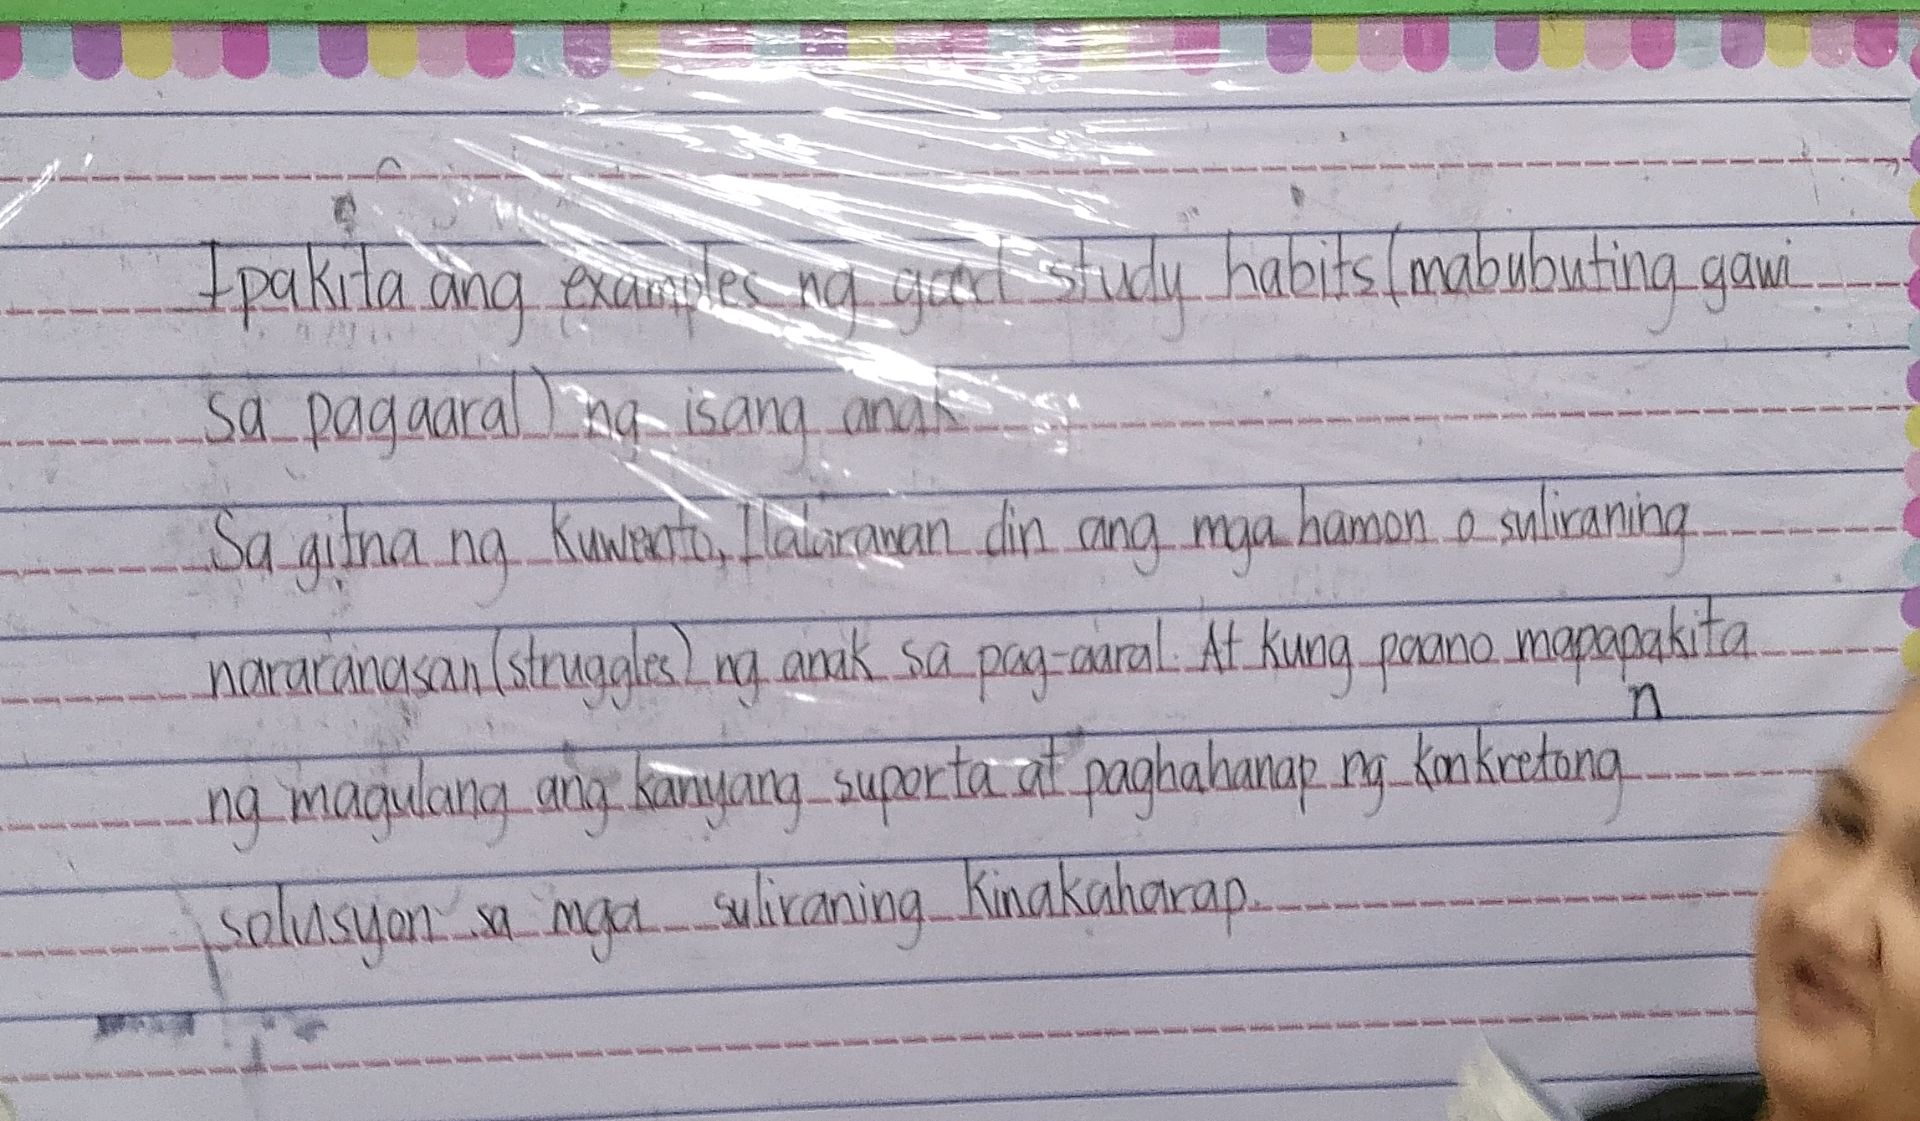 Ipakita ang examples ng good study habits (mabubuting gawi
sa pagaaral) ng isang anak
Sa gitna ng kuwento, Ilalarawan din ang mga hamon o suliraning
nararanasan (struggles) ng anak sa pag-aaral. At kung paano mapapakita
n
ng magulang ang kanyang suporta at paghahanap ng konkretong
solusyon sa mga suliraning kinakaharap.